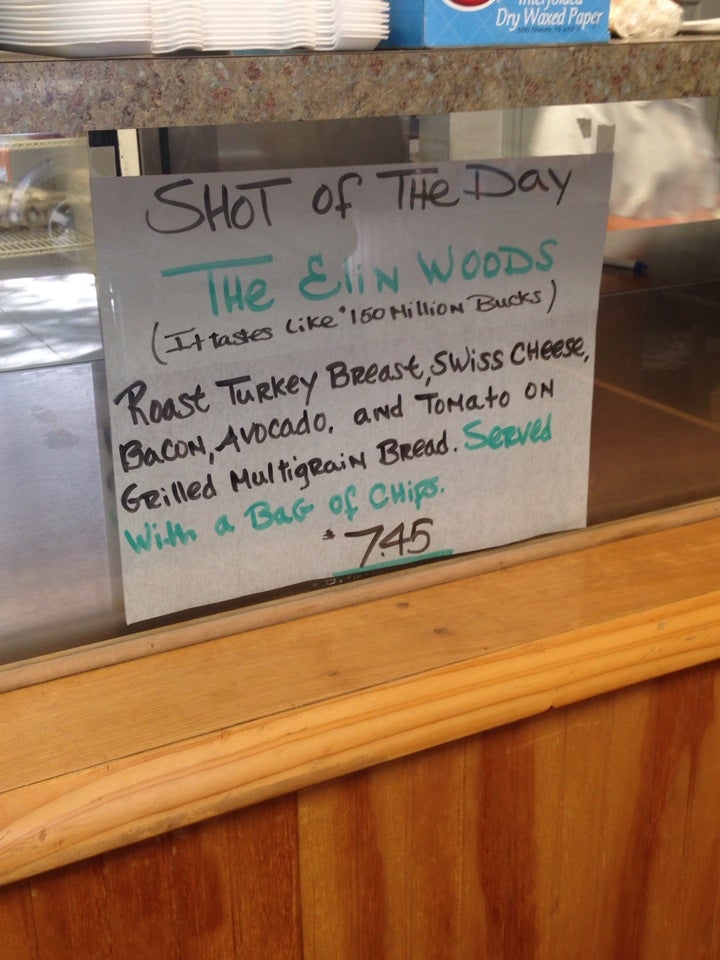 Interfolded
Dry Waxed Paper
SHOT of THe Day
THe Elin WOODS
(It tastes Like $150 Million Bucks)
Roast Turkey Breast, Swiss Cheese,
Bacon, Avocado, and Tomato on
Grilled Multigrain Bread. Served
With a Bag of Chips.
$7.45